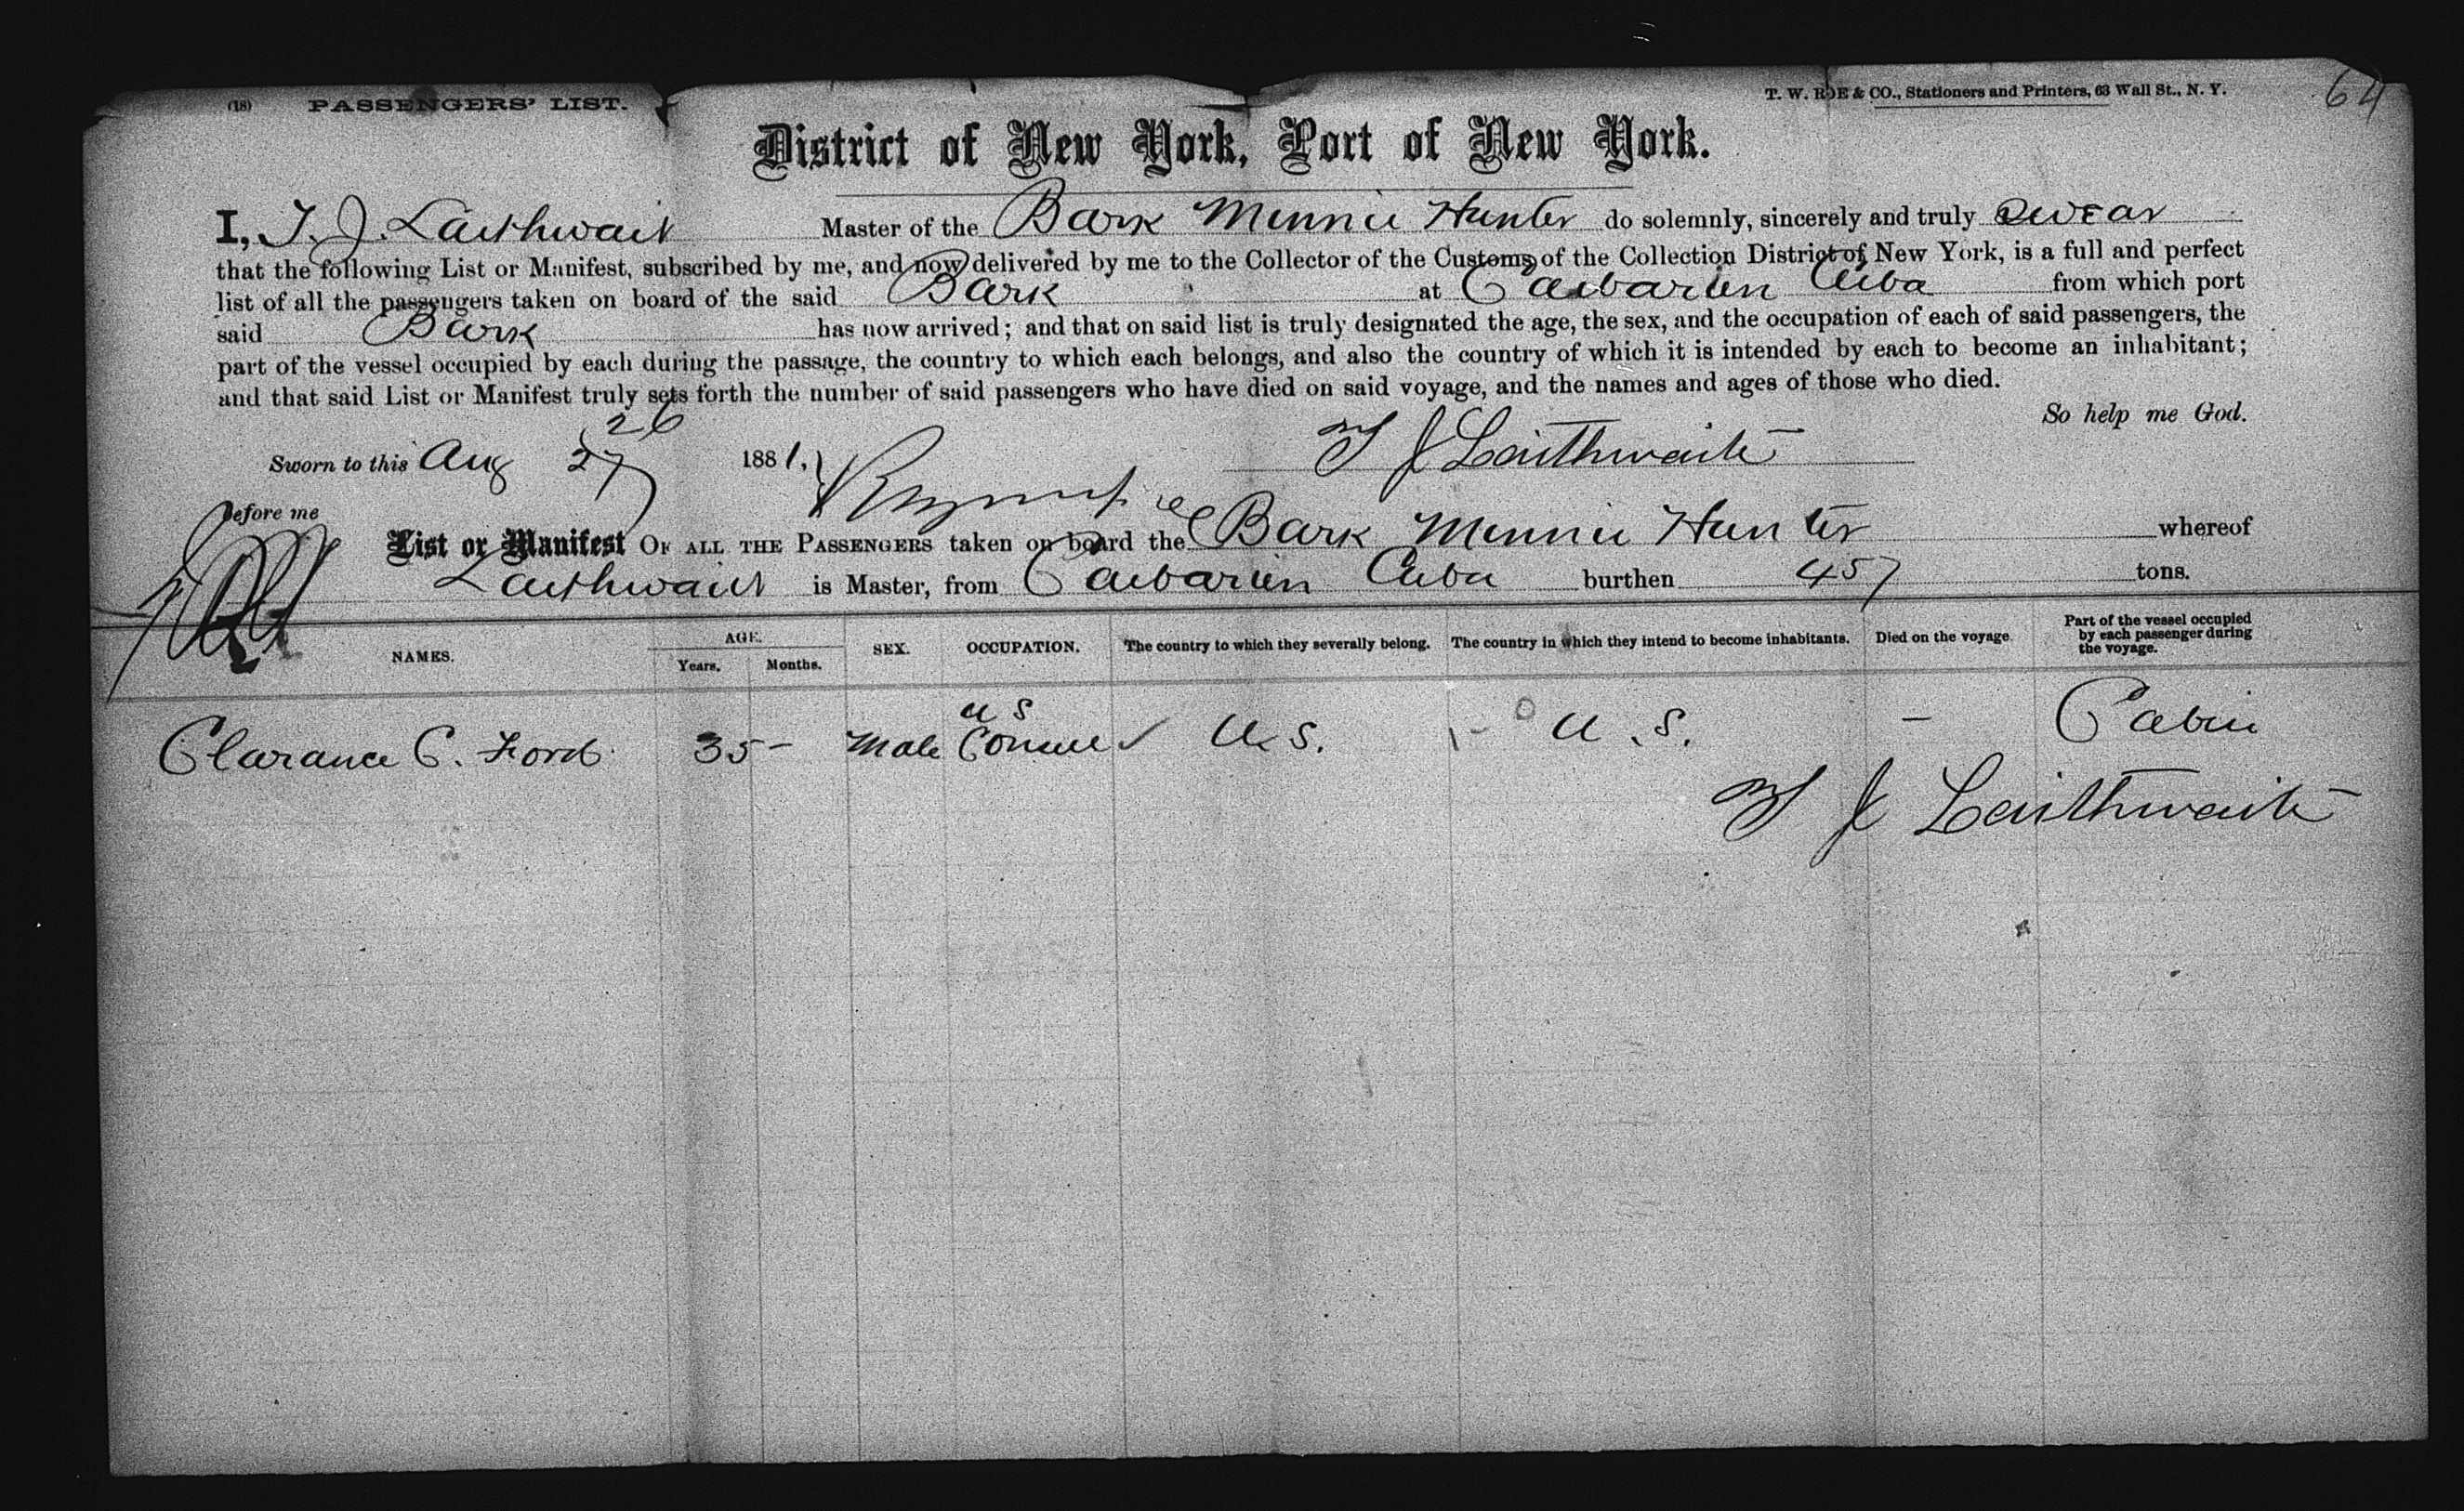 (18) PASSENGERS' LIST.
T. W. ROE & CO., Stationers and Printers, 63 Wall St., N. Y.
64
District of New York, Port of New York.
I, T. J. Laithwait Master of the Bark Minnie Hunter do solemnly, sincerely and truly swear
that the following List or Manifest, subscribed by me, and now delivered by me to the Collector of the Customs of the Collection District of New York, is a full and perfect
list of all the passengers taken on board of the said Bark at Caibarien Cuba from which port
said Bark has now arrived; and that on said list is truly designated the age, the sex, and the occupation of each of said passengers, the
part of the vessel occupied by each during the passage, the country to which each belongs, and also the country of which it is intended by each to become an inhabitant;
and that said List or Manifest truly sets forth the number of said passengers who have died on said voyage, and the names and ages of those who died.
So help me God.
26
Sworn to this Aug 27 1881, T J Laithwaite
Before me
List or Manifest OF ALL THE PASSENGERS taken on board the Bark Minnie Hunter whereof
Laithwait is Master, from Caibarien Cuba burthen 457 tons.
NAMES. AGE. Years. Months. SEX. OCCUPATION. The country to which they severally belong. The country in which they intend to become inhabitants. Died on the voyage. Part of the vessel occupied by each passenger during the voyage.
Clarance C. Ford 35 - Male U S Consul U.S. U.S. - Cabin
T J Laithwaite